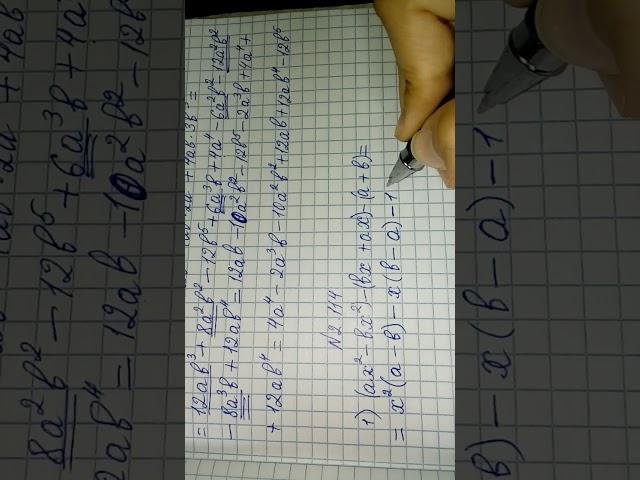 = 12ab³ + 8a²b² − 12b⁵ + 6a³b + 4a⁴ − 6a²b² − 12a²b²
− 8a³b + 12ab⁴ = 12ab − 10a²b² − 12b⁵ − 2a³b + 4a⁴ +
+ 12ab⁴ = 4a⁴ − 2a³b − 10a²b² + 12ab + 12ab⁴ − 12b⁵
№2.114
1) (ax² − bx²) − (bx + ax) − (a + b) =
= x²(a − b) − x(b − a) − 1